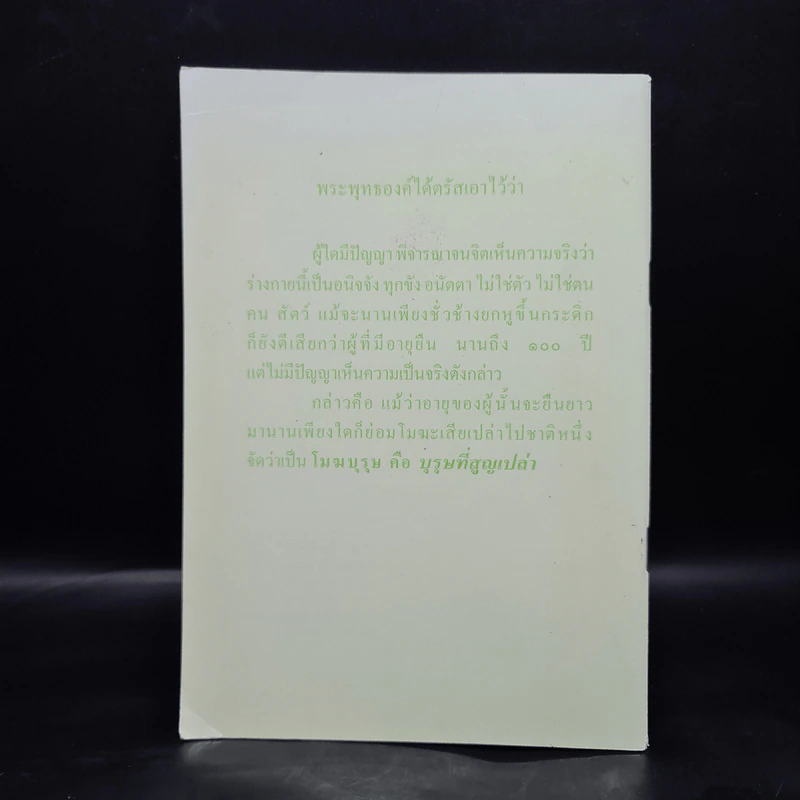 พระพุทธองค์ได้ตรัสเอาไว้ว่า
ผู้ใดมีปัญญา พิจารณาจนจิตเห็นความจริงว่า
ร่างกายนี้เป็นอนิจจัง ทุกขัง อนัตตา ไม่ใช่ตัว ไม่ใช่ตน
คน สัตว์ แม้จะนานเพียงชั่วช้างยกหูขึ้นกระดิก
ก็ยังดีเสียกว่าผู้ที่มีอายุยืน นานถึง ๑๐๐ ปี
แต่ไม่มีปัญญาเห็นความเป็นจริงดังกล่าว
กล่าวคือ แม้ว่าอายุของผู้นั้นจะยืนยาว
มานานเพียงใดก็ย่อมโมฆะเสียเปล่าไปชาติหนึ่ง
จัดว่าเป็น โมฆบุรุษ คือ บุรุษที่สูญเปล่า